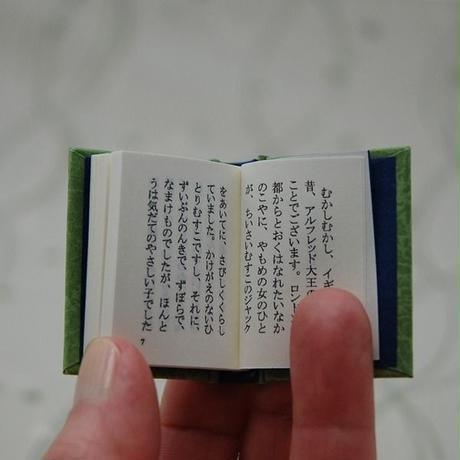 むかしむかし、イギ
昔、アルフレッド大王の
ことでございます。ロンド
都からとおくはなれたいなか
のこやに、やもめの女のひと
が、ちいさいむすこのジャック
をあいてに、さびしくくらし
ていました。かけがえのないひ
とりむすこですし、それに、
ずいぶんのんきで、ずぼらで、
なまけものでしたが、ほんと
うは気だてのやさしい子でした
7